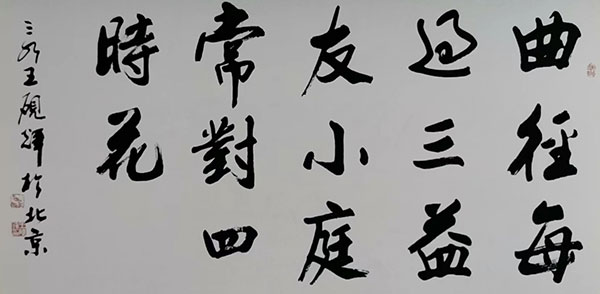 曲徑每
過三益
友小庭
常對四
時花
三水王硯輝於北京